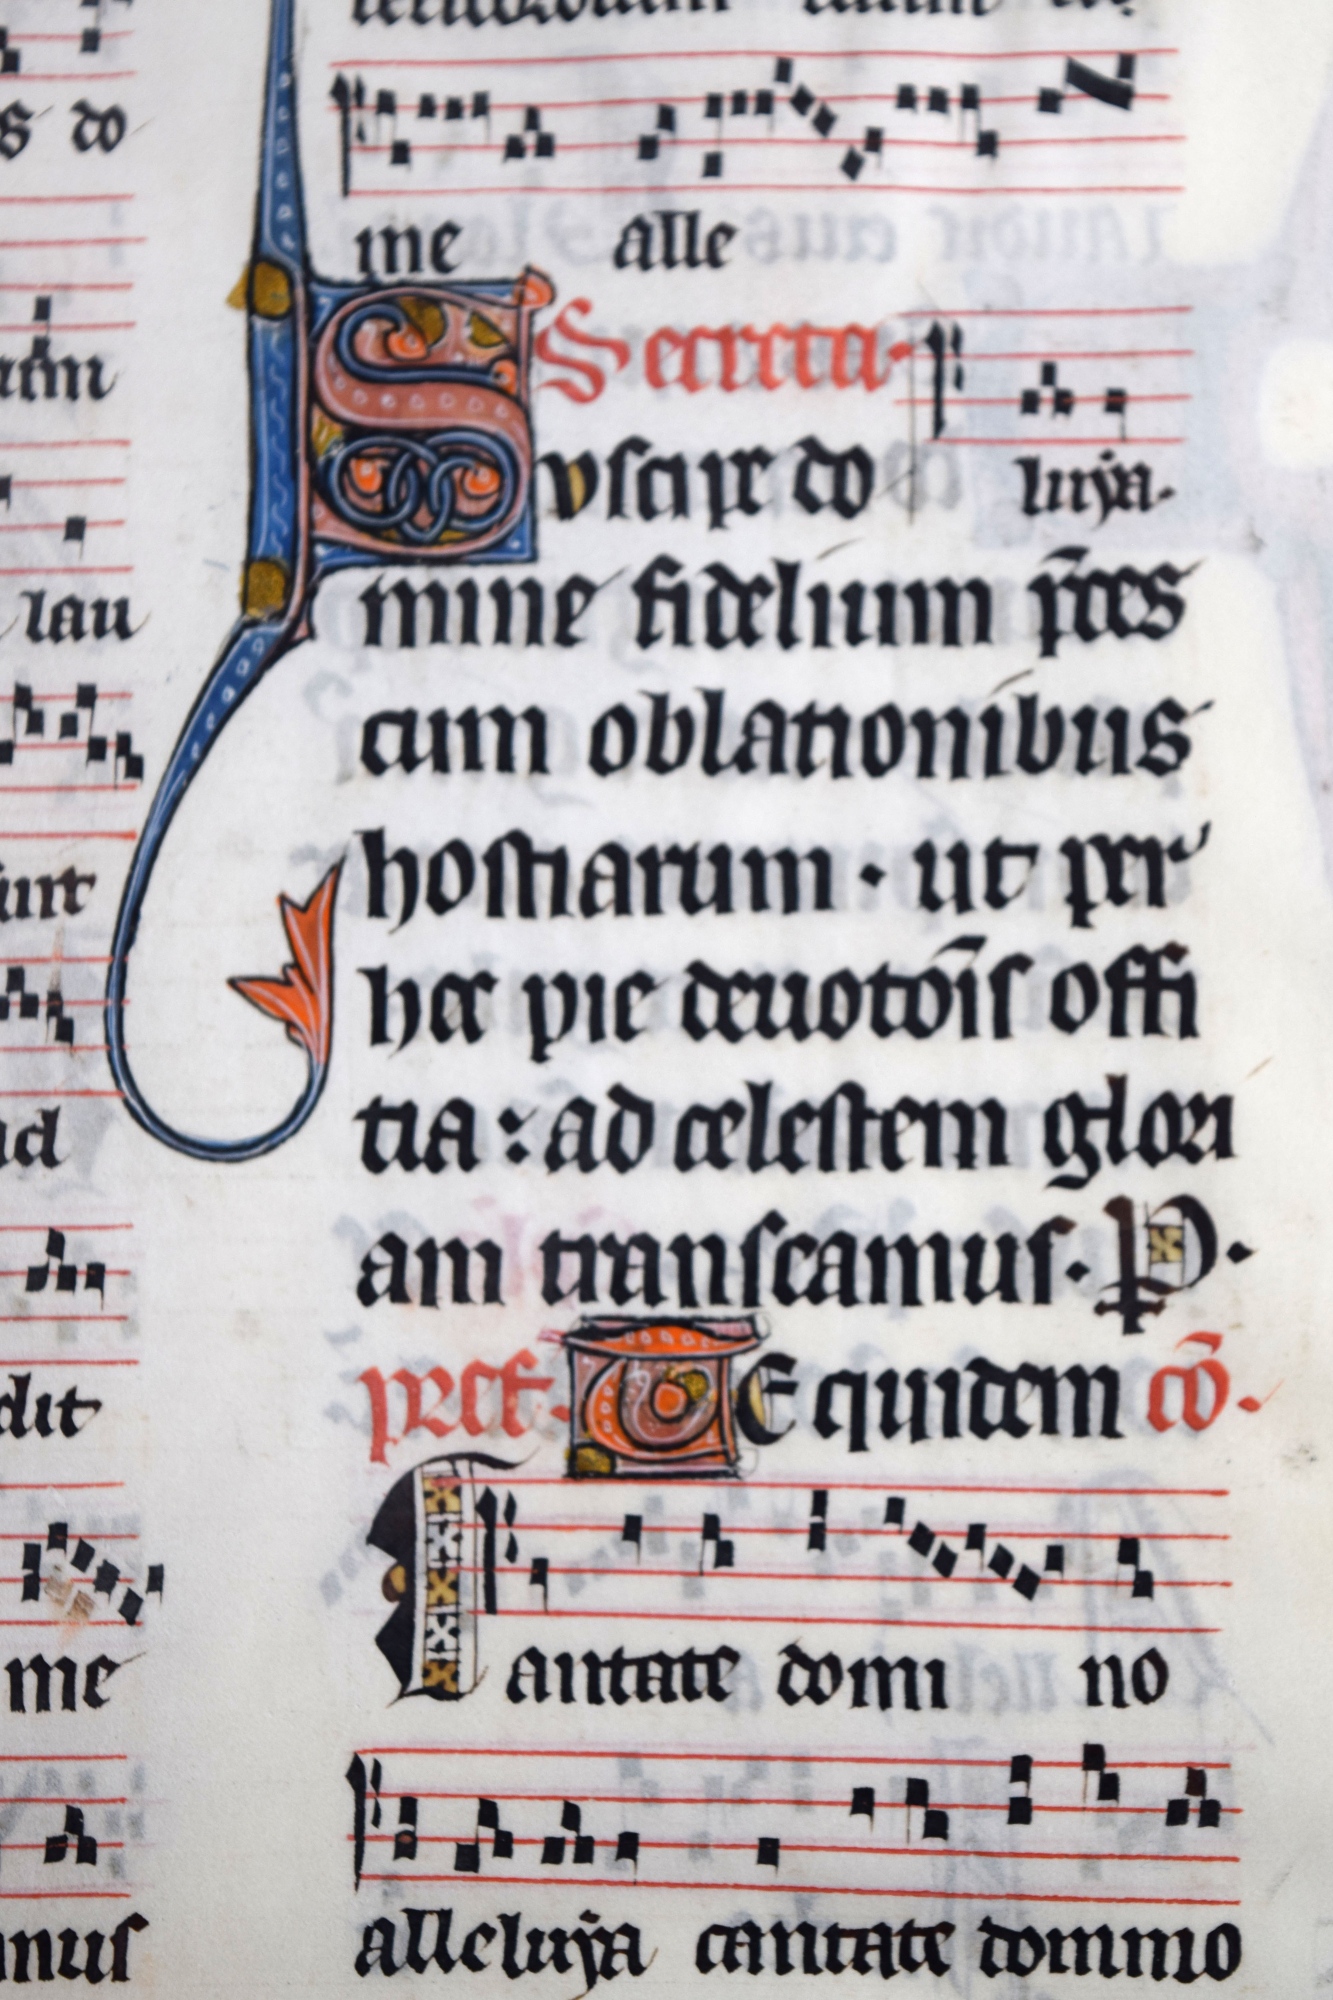 s do
lau
ad
dit
me
me alle
Secreta.
Suscipe do
luya.
mine fidelium p̄ces
cum oblationibus
hostiarum · ut per
hec pie deuotōis offi
tia : ad celestem glori
am transeamus · P ·
pref. TE quidem cō.
Cantate domi no
alleluya cantate domino